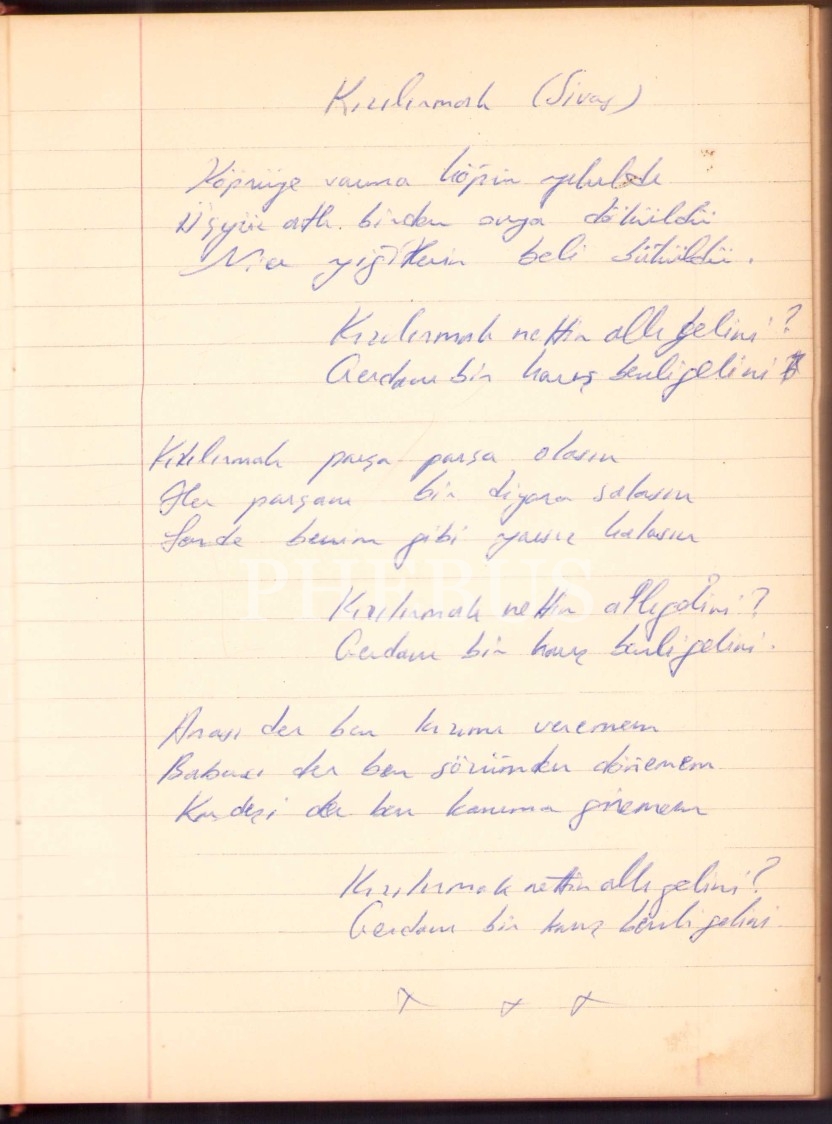 Kızılırmak (Sivas)
Köprüye varınca köprü yıkıldı
Üçyüz atlı birden suya döküldü
Nice yiğitlerin beli büküldü.
Kızılırmak nettin allı gelini?
Gerdanı bir karış benli gelini?
Kızılırmak parça parça olasın
Her parçanı bir diyara salasın
Sende benim gibi yarsız kalasın
PHEBUS
Kızılırmak nettin allı gelini?
Gerdanı bir karış benli gelini.
Anası der ben kızımı veremem
Babası der ben sözümden dönemem
Kardeşi der ben kanıma giremem
Kızılırmak nettin allı gelini?
Gerdanı bir karış benli gelini
+ + +